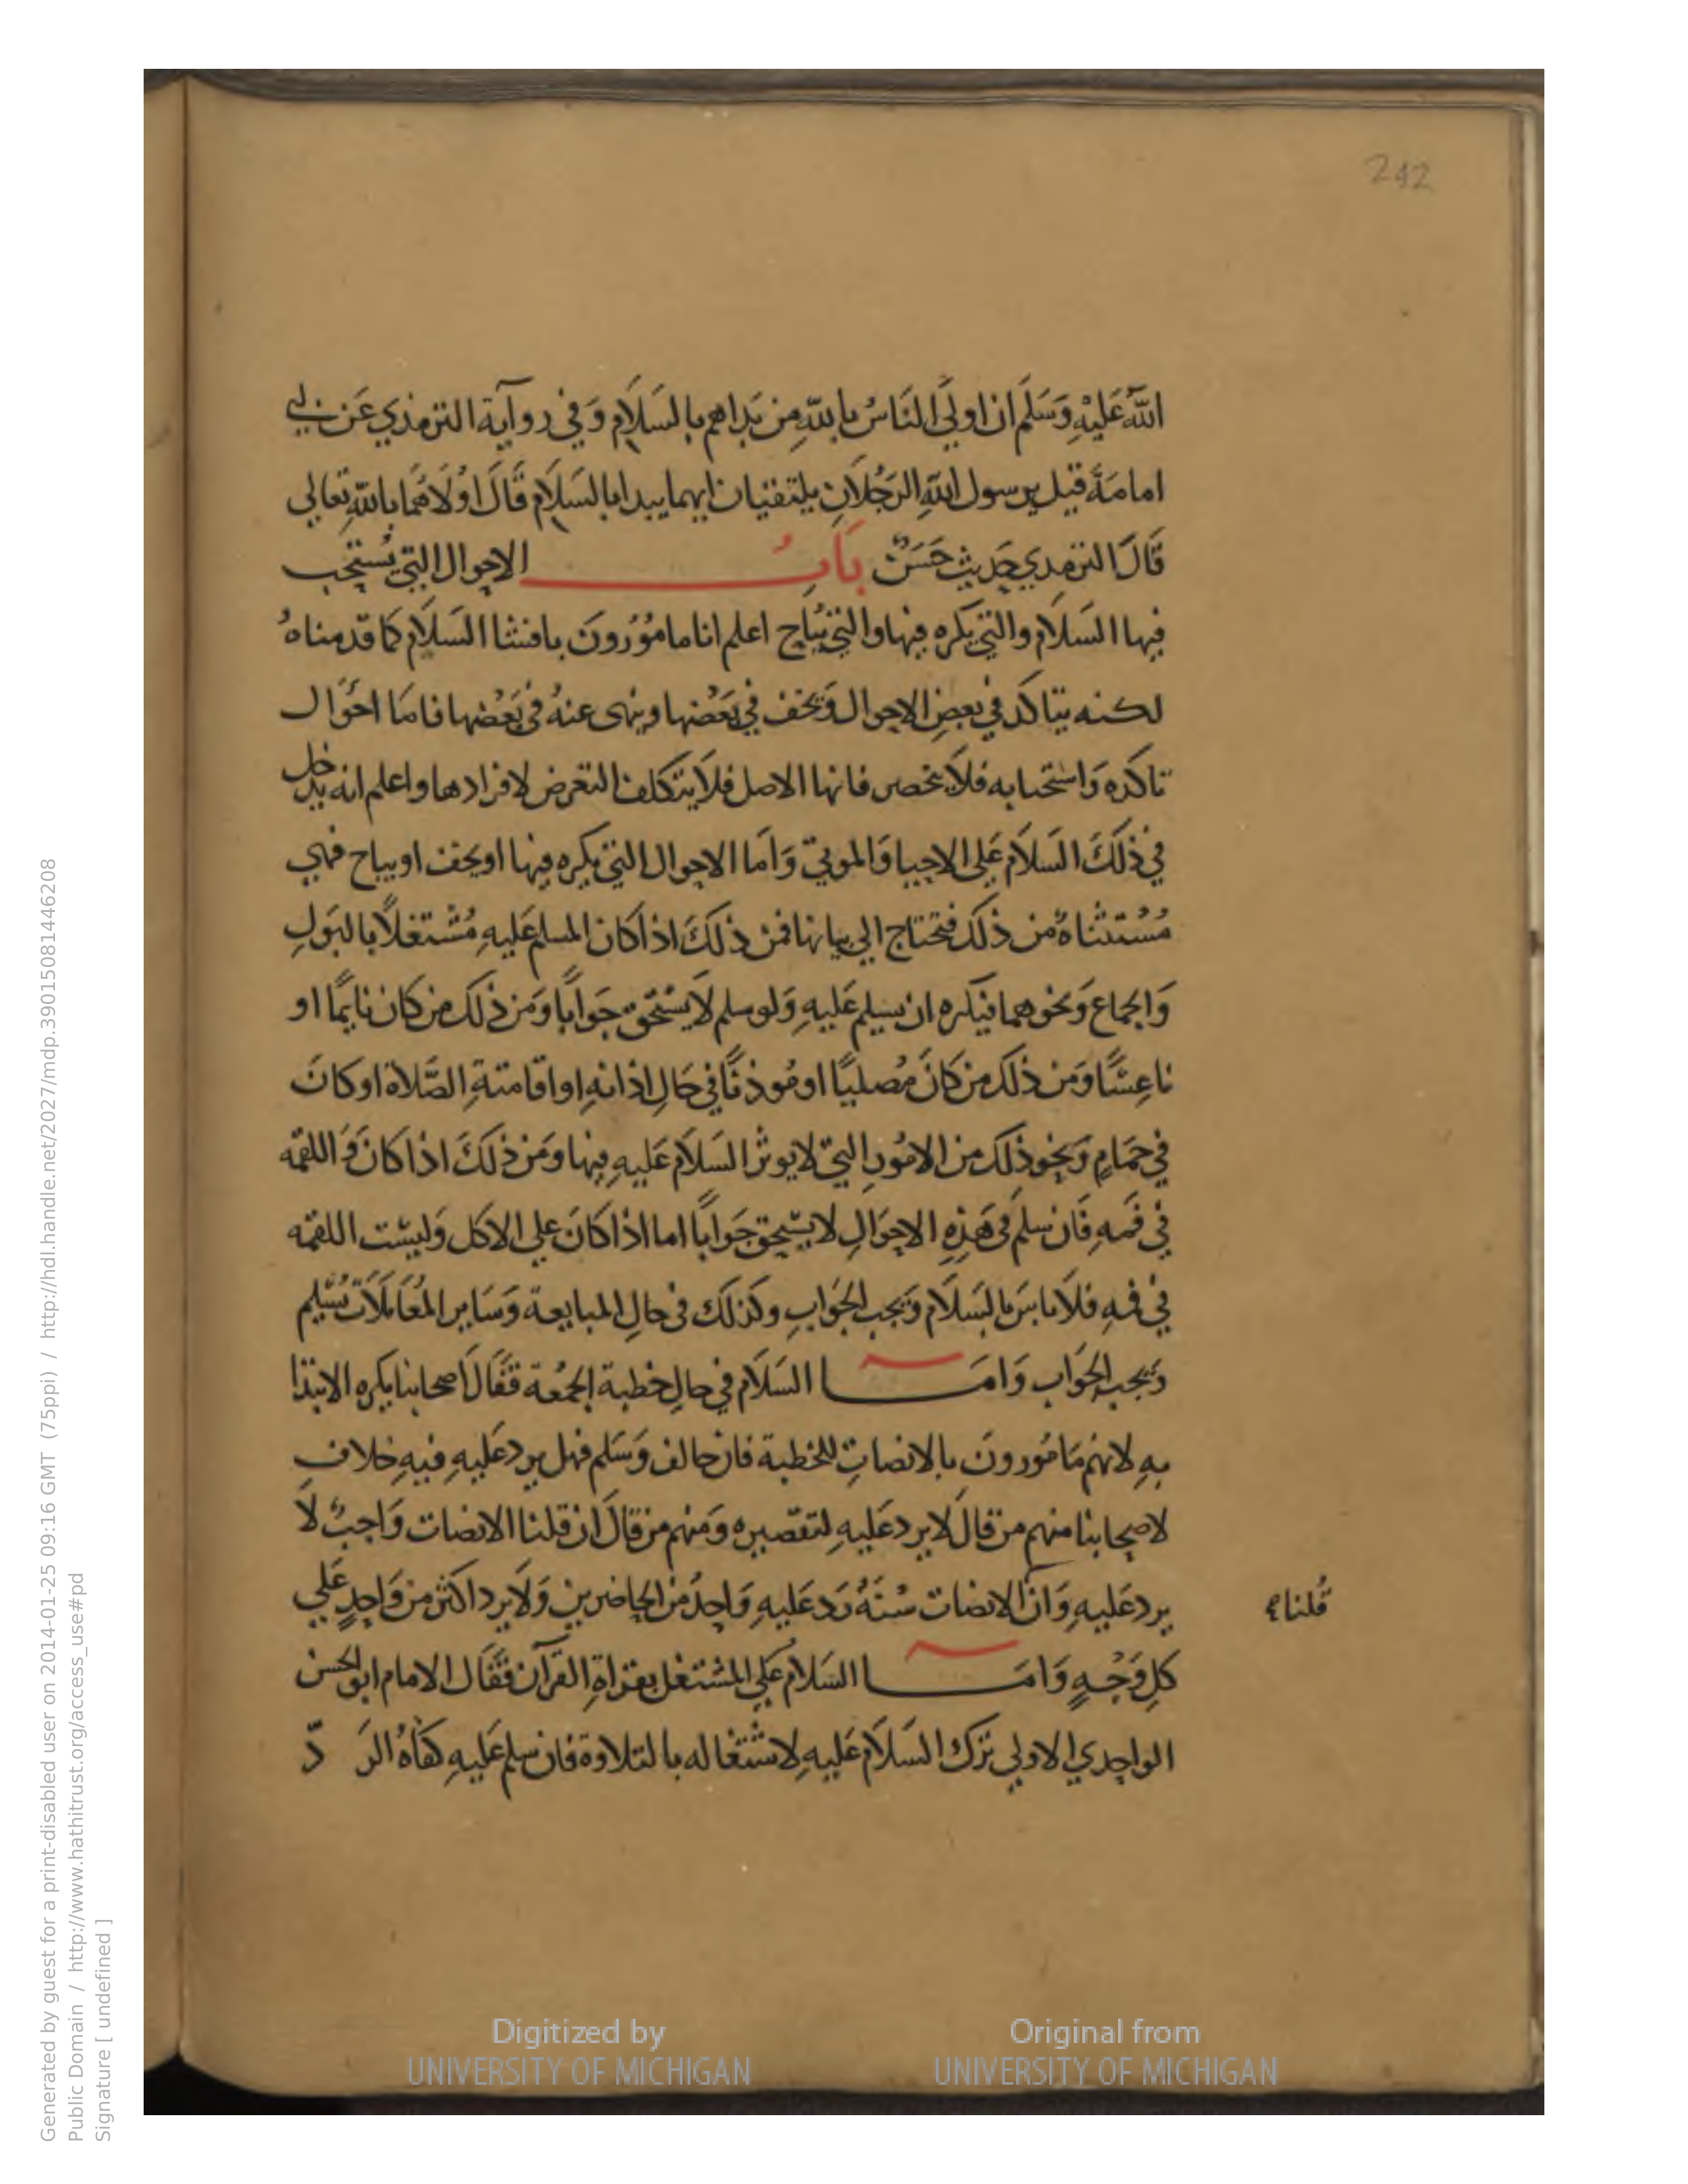 242
الله عَليْهِ وَسَلَم ان اولَي النَاسُ بالله مِن بَداهم بالسَلَام وَفي روايَة الترمذي عَن ابي
امامَة قيل يرسول الله الرَجُلَانِ يلتقيان ايهما يبدا بالسَلَام قَالَ اوْلَاهُما بالله تعَالي
قَالَ الترمدي حَديث حَسَنٌ بَابُ الاحوال التي يُستحَب
فيها السَلَام والتي يكره فيها والتي تُباح اعلم انا مامؤرُونَ بافشا السَلَام كما قدمناهُ
لكنه يتاكد في بعض الاحوال وَيخف في بَعْضها وينهى عنهُ في بَعْضها فامَا احوَال
تاكده وَاستحبابه فلَا ينحصر فانها الاصل فلَا يتكلف التعَرض لافرادها واعلم انه يدخل
في ذلكَ السَلَام عَلي الاحيا وَالموتي وَامَا الاحوال التي يكره فيها او يخف او يباح فهي
مُسْتثناة من ذلك فتحتاج الي بيانها فمن ذلكَ اذا كان المسلم عَليهِ مُشتغلًا بالبَولِ
وَالجماع وَنحوهما فيكره ان يسلم عَليهِ وَلو سلم لَا يستحق جَوابًا وَمَن ذلك من كان نايمًا او
ناعِسًا وَمَن ذلك من كانَ مُصليًا او مُوذنًا في حَالِ اذانهِ او اقامتةِ الصَّلاة او كانَ
في حَمَامٍ وَنحو ذلك من الامُورِ التي لا يوثر السَلَام عَليهِ فيها وَمَن ذلكَ اذا كانَ وَ اللقمه
في فَمهِ فَان سلم في هَذهِ الاحوَالِ لا يستحق جَوابًا اما اذا كانَ علي الاكل وَليسَت اللقمه
في فمهِ فلَا باسَ بالسَلَام وَيجب الجَوابِ وكذلك في حالِ المبايعة وَسَاير المُعَامَلَات يُسَّلِم
وَيجب الجَوَاب وَامَا السَلَام في حالِ خطبة الجمُعَة فقَالَ اصحابنا يكره الابتدا
بهِ لانهم مَامُورونَ بالانصاتِ للخطبة فان خالف وَسَلم فهل يرد عَليهِ فيهِ خلافِ
لاصحابنا منهم من قالَ لا يرد عَليهِ لتقصيره وَمنهم من قالَ ان قلنا الانصات وَاجبٌ لَا
يرد عَليهِ وَان الانصات سُنَةُ رَد عَليهِ وَاحدُ من الحاضرين وَلَا يرد اكثر من وَاحدٍ عَلي
قُلنا
كلِ وَجْهٍ وَامَا السَلام عَلي المشتغل بقراةِ القرآن فقَال الامام ابو الحسن
الواحدي الاولي ترك السَلَام عَليهِ لاشتغاله بالتلاوة فان سلم عَليهِ كفَاهُ الرَ دّ
Generated by guest for a print-disabled user on 2014-01-25 09:16 GMT (75ppi) / http://hdl.handle.net/2027/mdp.39015081446208
Public Domain / http://www.hathitrust.org/access_use#pd
Signature [ undefined ]
Digitized by
UNIVERSITY OF MICHIGAN
Original from
UNIVERSITY OF MICHIGAN